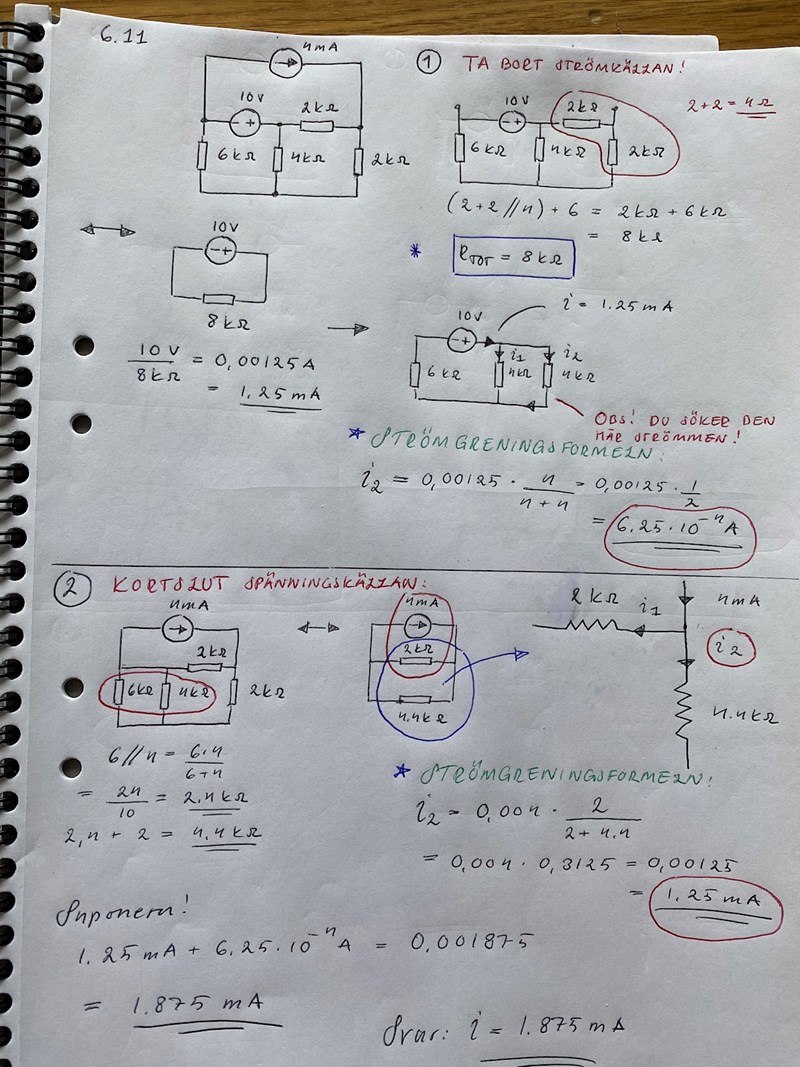 6.11
4mA
10V
2kΩ
6kΩ
4kΩ
2kΩ
① TA BORT STRÖMKÄLLAN!
10V
2kΩ
2+2 = 4Ω
6kΩ
4kΩ
2kΩ
(2+2//4)+6 = 2kΩ+6kΩ
= 8kΩ
* RTOT = 8kΩ
10V
8kΩ
10V/8kΩ = 0,00125A
= 1,25mA
i = 1.25mA
10V
6kΩ
i1
4kΩ
i2
4kΩ
OBS! DU SÖKER DEN
HÄR STRÖMMEN!
* STRÖMGRENINGSFORMELN:
i2 = 0,00125 · 4/(4+4) = 0,00125 · 1/2
= 6.25·10⁻⁴A
② KORTSLUT SPÄNNINGSKÄLLAN:
4mA
2kΩ
6kΩ
4kΩ
2kΩ
4mA
2kΩ
4.4kΩ
2kΩ
i1
4mA
i2
4.4kΩ
6//4 = 6·4/(6+4)
= 24/10 = 2.4kΩ
2,4+2 = 4.4kΩ
* STRÖMGRENINGSFORMELN:
i2 = 0,004 · 2/(2+4.4)
= 0,004 · 0,3125 = 0,00125
= 1.25mA
Suponera!
1.25mA + 6.25·10⁻⁴A = 0,001875
= 1.875mA
Svar: i = 1.875mA